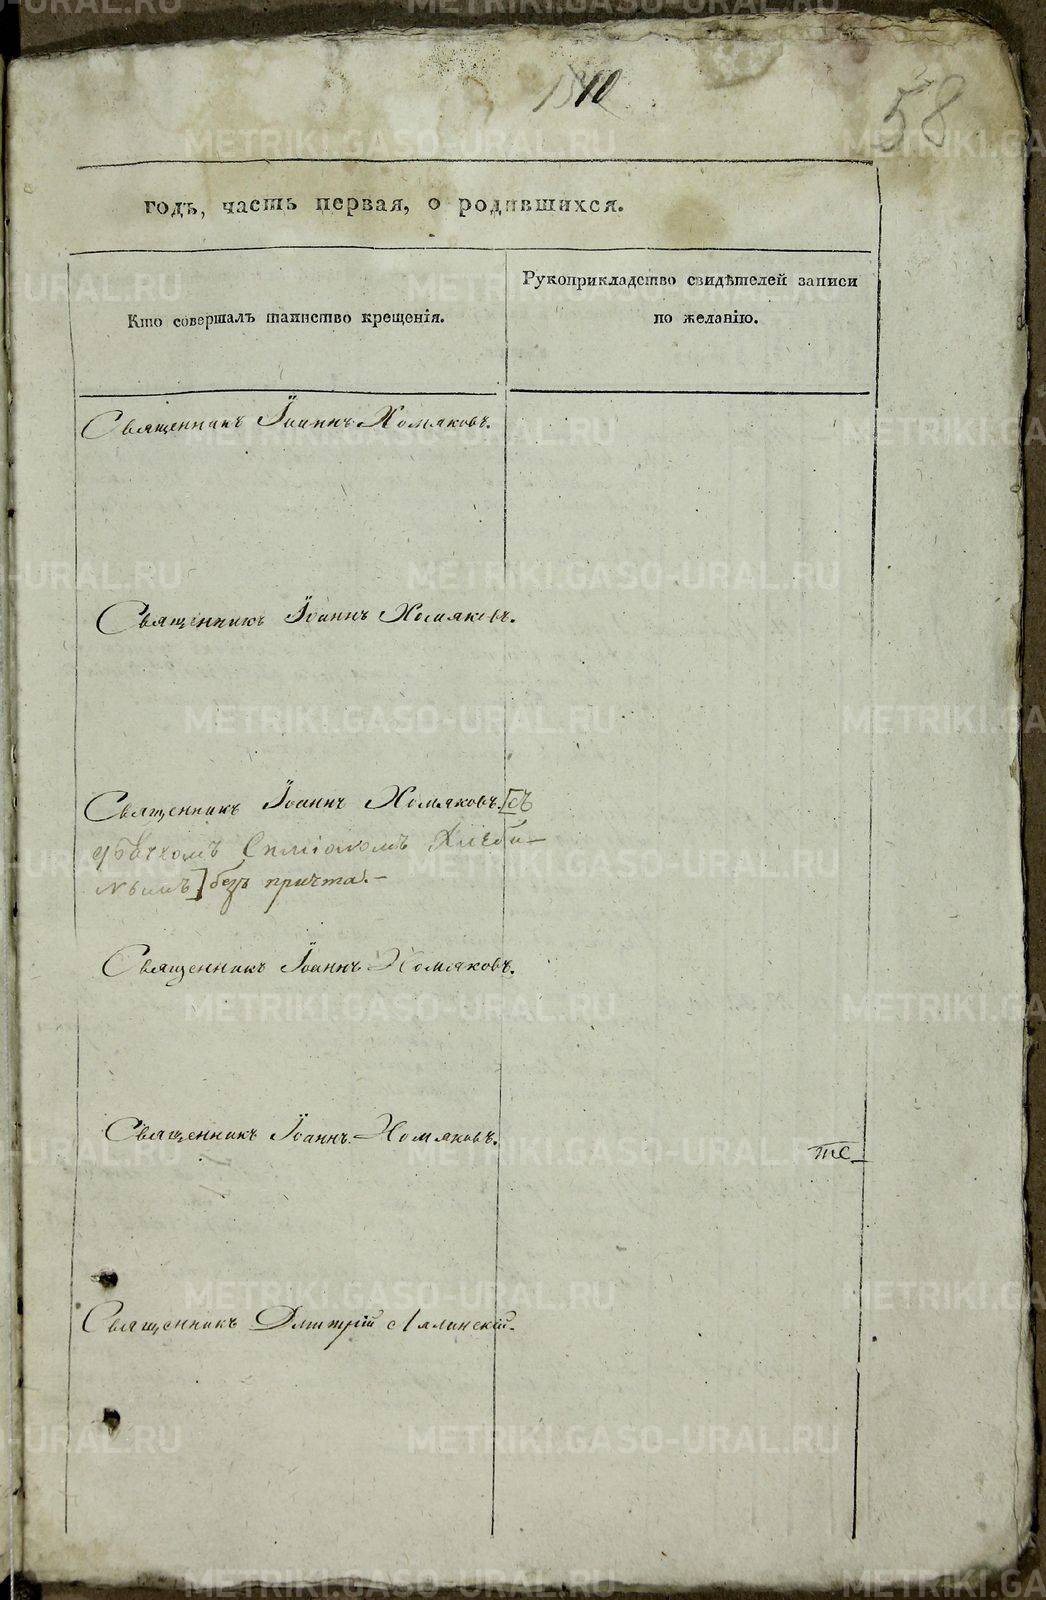 10
58
годъ, часть первая, о родившихся.
Кто совершалъ таинство крещенія.
Рукоприкладство свидѣтелей записи
по желанію.
Священникъ Іоаннъ Хомяковъ.
Священникъ Іоаннъ Хомяковъ.
Священникъ Іоаннъ Хомяковъ. [съ
дьячкомъ
] безъ причта.-
Священникъ Іоаннъ Хомяковъ.
Священникъ Іоаннъ Хомяковъ.
Священникъ Дмитрій Лялинскій.
METRIKI.GASO-URAL.RU